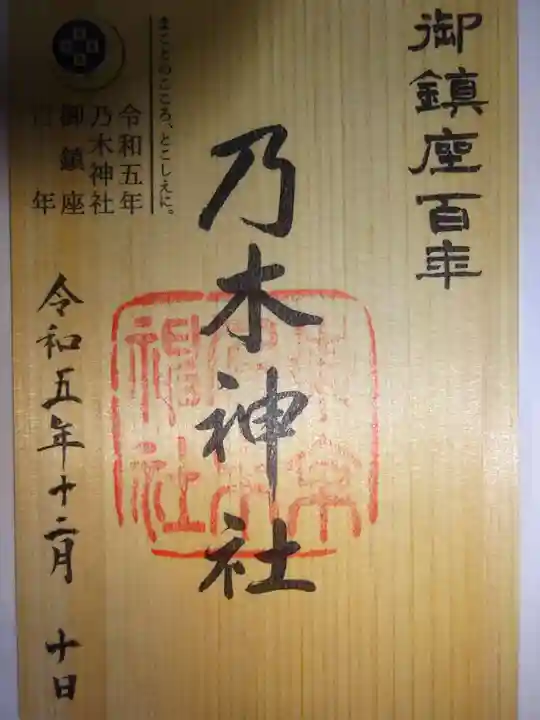 御鎮座百年
乃木神社
まことのこころ、とこしえに。
令和五年
乃木神社
御鎮座
百年
令和五年十二月十日